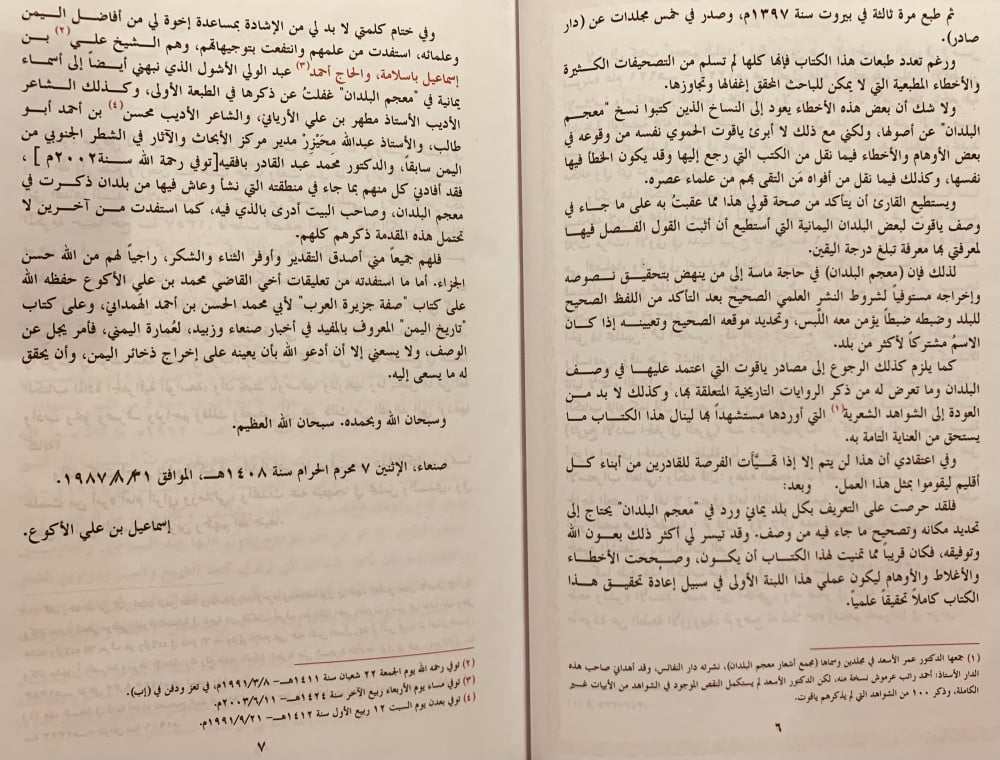 ثم طبع مرة ثالثة في بيروت سنة ١٣٩٧م، وصدر في خمس مجلدات عن (دار
صادر).
ورغم تعدد طبعات هذا الكتاب فإنها كلها لم تسلم من التصحيفات الكثيرة
والأخطاء المطبعية التي لا يمكن للباحث المحقق إغفالها وتجاوزها.
ولا شك أن بعض هذه الأخطاء يعود إلى النساخ الذين كتبوا نسخ "معجم
البلدان" عن أصولها، ولكني مع ذلك لا أبرئ ياقوت الحموي نفسه من وقوعه في
بعض الأوهام والأخطاء فيما نقل من الكتب التي رجع إليها وقد يكون الخطأ فيها
نفسها، وكذلك فيما نقل من أفواه مَن التقى بهم من علماء عصره.
ويستطيع القارئ أن يتأكد من صحة قولي هذا مما عقبتُ به على ما جاء في
وصف ياقوت لبعض البلدان اليمانية التي أستطيع أن أثبت القول الفصل فيها
لمعرفتي بها معرفة تبلغ درجة اليقين.
لذلك فإن (معجم البلدان) في حاجة ماسة إلى من ينهض بتحقيق نصوصه
وإخراجه مستوفياً لشروط النشر العلمي الصحيح بعد التأكد من اللفظ الصحيح
للبلد وضبطه ضبطاً يؤمن معه اللَّبس، وتحديد موقعه الصحيح وتعيينه إذا كان
الاسمُ مشتركاً لأكثر من بلد.
كما يلزم كذلك الرجوع إلى مصادر ياقوت التي اعتمد عليها في وصف
البلدان وما تعرض له من ذكر الروايات التاريخية المتعلقة بها، وكذلك لا بد من
العودة إلى الشواهد الشعرية(١) التي أوردها مستشهداً بها لينال هذا الكتاب ما
يستحق من العناية التامة به.
وفي اعتقادي أن هذا لن يتم إلا إذا تهيَّأت الفرصة للقادرين من أبناء كل
أقليم ليقوموا بمثل هذا العمل. وبعد:
فلقد حرصت على التعريف بكل بلد يماني ورد في "معجم البلدان" يحتاج إلى
تحديد مكانه وتصحيح ما جاء فيه من وصف. وقد تيسر لي أكثر ذلك بعون الله
وتوفيقه، فكان قريباً مما تمنيت لهذا الكتاب أن يكون، وصُححت الأخطاء
والأغلاط والأوهام ليكون عملي هذا اللبنة الأولى في سبيل إعادة تحقيق هذا
الكتاب كاملاً تحقيقاً علمياً.
(١) جمعها الدكتور عمر الأسعد في مجلدين وسماها (مجمع أشعار معجم البلدان)، نشرته دار النفائس، وقد أهداني صاحب هذه
الدار الأستاذ: أحمد راتب عرموش نسخة منه، لكن الدكتور الأسعد لم يستكمل النقص الموجود في الشواهد من الأبيات غير
الكاملة، وذكر ١٠٠ من الشواهد التي لم يذكرهم ياقوت.
٦
وفي ختام كلمتي لا بد لي من الإشادة بمساعدة إخوة لي من أفاضل اليمن
وعلمائه، استفدت من علمهم وانتفعت بتوجيهاتهم، وهم الشيخ علي(٢) بن
إسماعيل باسلامة، والحاج أحمد(٣) عبد الولي الأشول الذي نبهني أيضاً إلى أسماء
يمانية في "معجم البلدان" غفلتُ عن ذكرها في الطبعة الأولى، وكذلك الشاعر
الأديب الأستاذ مطهر بن علي الأرياني، والشاعر الأديب محسن(٤) بن أحمد أبو
طالب، والأستاذ عبدالله محَيْرَزْ مدير مركز الأبحاث والآثار في الشطر الجنوبي من
اليمن سابقاً، والدكتور محمد عبد القادر بافقيه[توفي رحمة الله سنة٢٠٠٢م ] ،
فقد أفادني كل منهم بما جاء في منطقته التي نشأ وعاش فيها من بلدان ذكرت في
معجم البلدان، وصاحب البيت أدرى بالذي فيه، كما استفدت من آخرين لا
تحتمل هذه المقدمة ذكرهم كلهم.
فلهم جميعاً مني أصدق التقدير وأوفر الثناء والشكر، راجياً لهم من الله حسن
الجزاء. أما ما استفدته من تعليقات أخي القاضي محمد بن علي الأكوع حفظه الله
على كتاب "صفة جزيرة العرب" لأبي محمد الحسن بن أحمد الهمدانيّ، وعلى كتاب
"تاريخ اليمن" المعروف بالمفيد في أخبار صنعاء وزبيد، لعُمارة اليمني، فأمر يجل عن
الوصف، ولا يسعني إلا أن أدعو الله بأن يعينه على إخراج ذخائر اليمن، وأن يحقق
له ما يسعى إليه.
وسبحان الله وبحمده. سبحان الله العظيم.
صنعاء، الإثنين ٧ محرم الحرام سنة ١٤٠٨هـ، الموافق ١٩٨٧/٨/٣١.
إسماعيل بن علي الأكوع.
(٢) توفي رحمه الله يوم الجمعة ٢٢ شعبان سنة ١٤١١هـ- ١٩٩١/٣/٨م، في تعز ودفن في (إب).
(٣) توفي مساء يوم الأربعاء ربيع الآخر سنة ١٤٢٤هـ- ٢٠٠٣/٦/١١م.
(٤) توفي بعدن يوم السبت ١٢ ربيع الأول سنة ١٤١٢هـ- ١٩٩١/٩/٢١م.
٧